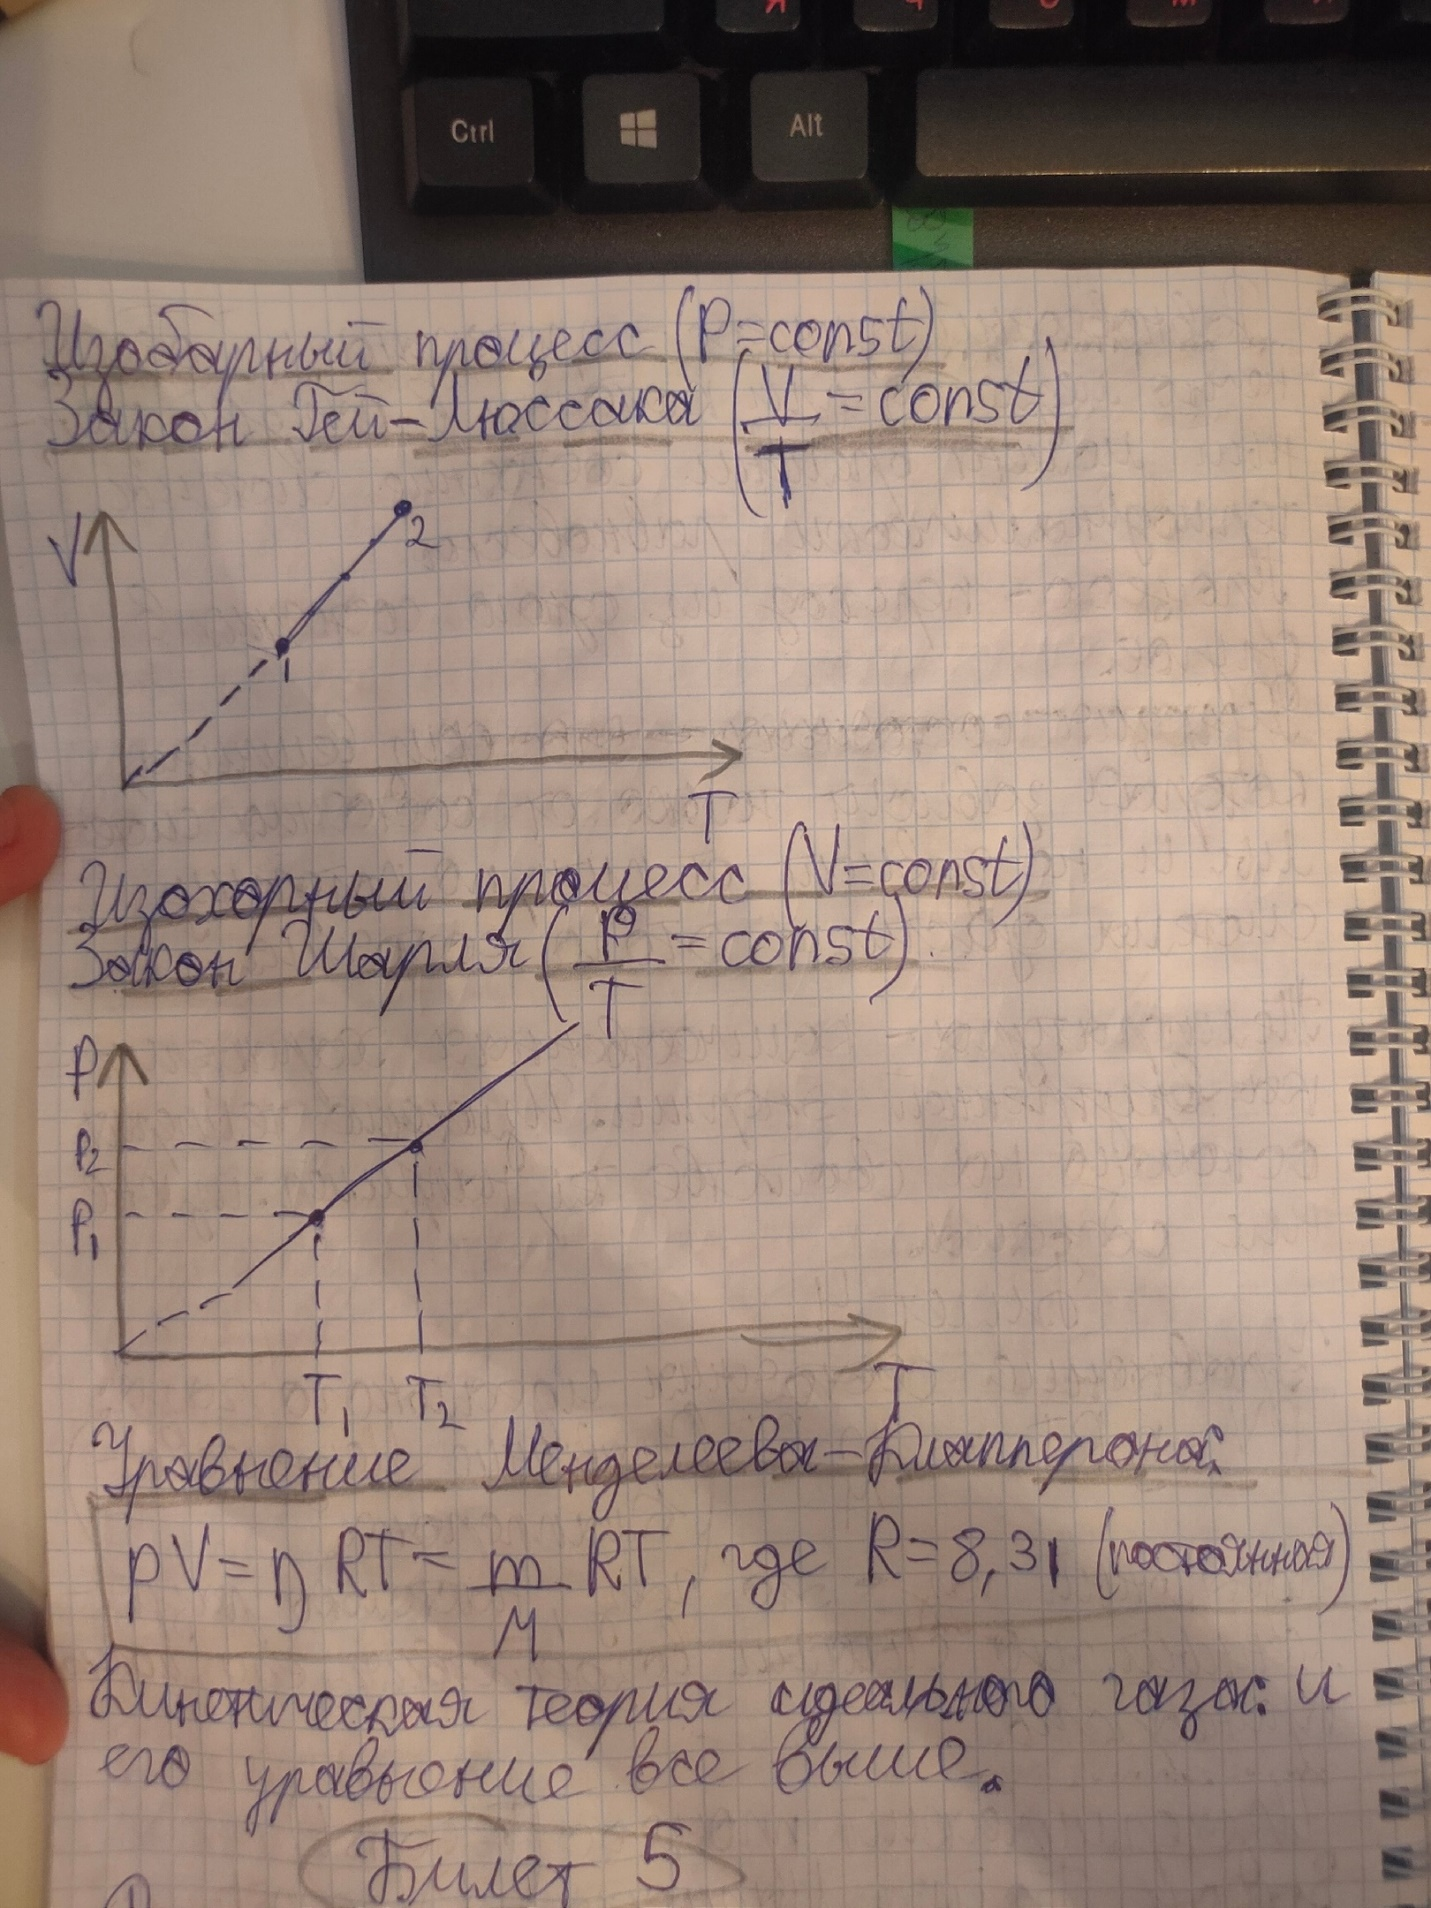 Ctrl
Alt
Изобарный процесс (P=const)
Закон Гей-Люссака (V/T = const)
V
2
1
T
Изохорный процесс (V=const)
Закон Шарля (P/T = const)
P
P2
P1
T1 T2 T
Уравнение Менделеева-Клапперона:
pV = ηRT = m/M RT, где R=8,31 (постоянная)
Кинетическая теория идеального газа: и
его уравнение все выше.
Билет 5